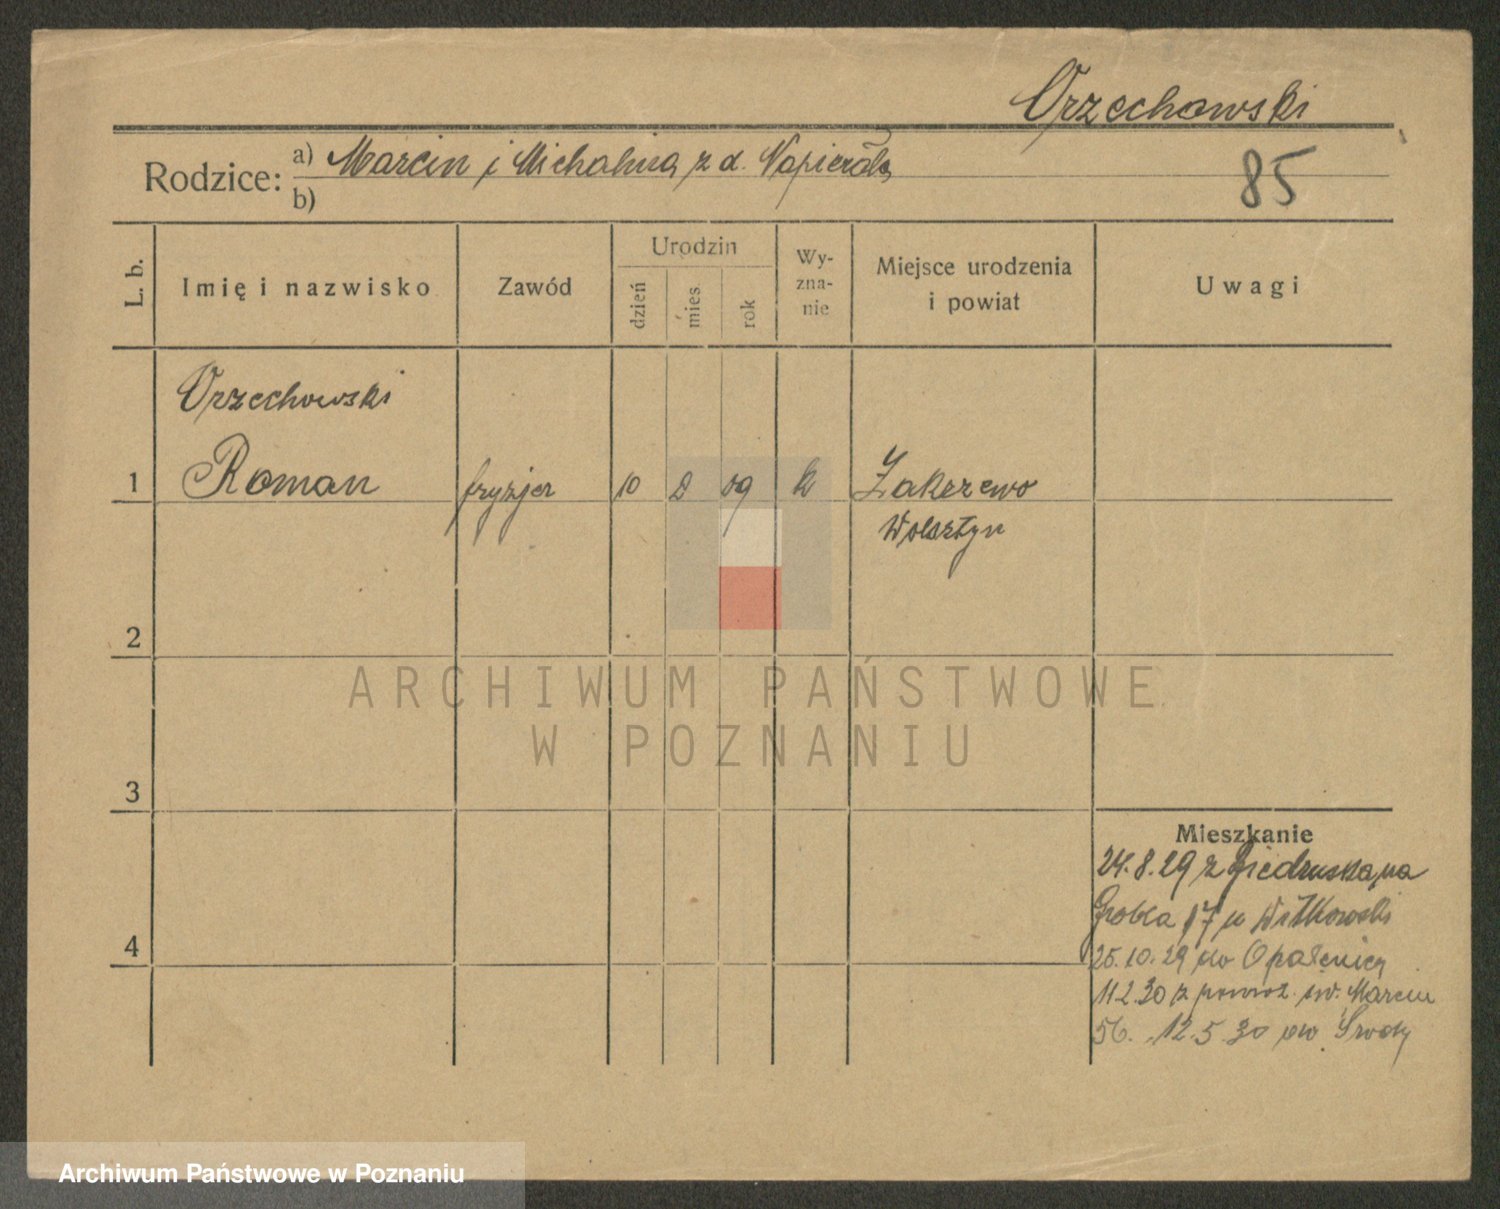 Orzechowski
Rodzice: a) Marcin i Michalina z d. Napierała
b)
85
L. b.
Imię i nazwisko
Zawód
Urodzin
dzień
mies.
rok
Wy-
zna-
nie
Miejsce urodzenia
i powiat
Uwagi
Orzechowski
1 Roman fryzjer 10 2 09 k Zakrzewo
Wolsztyn
2
3
4
ARCHIWUM PAŃSTWOWE
W POZNANIU
Mieszkanie
24.8.29 z Biedruska na
Grobla 17 u Witkowski
25.10.29 do Opalenicy
11 2.30 z powrot. św. Marcin
56. 12.5.30 do Środy
Archiwum Państwowe w Poznaniu